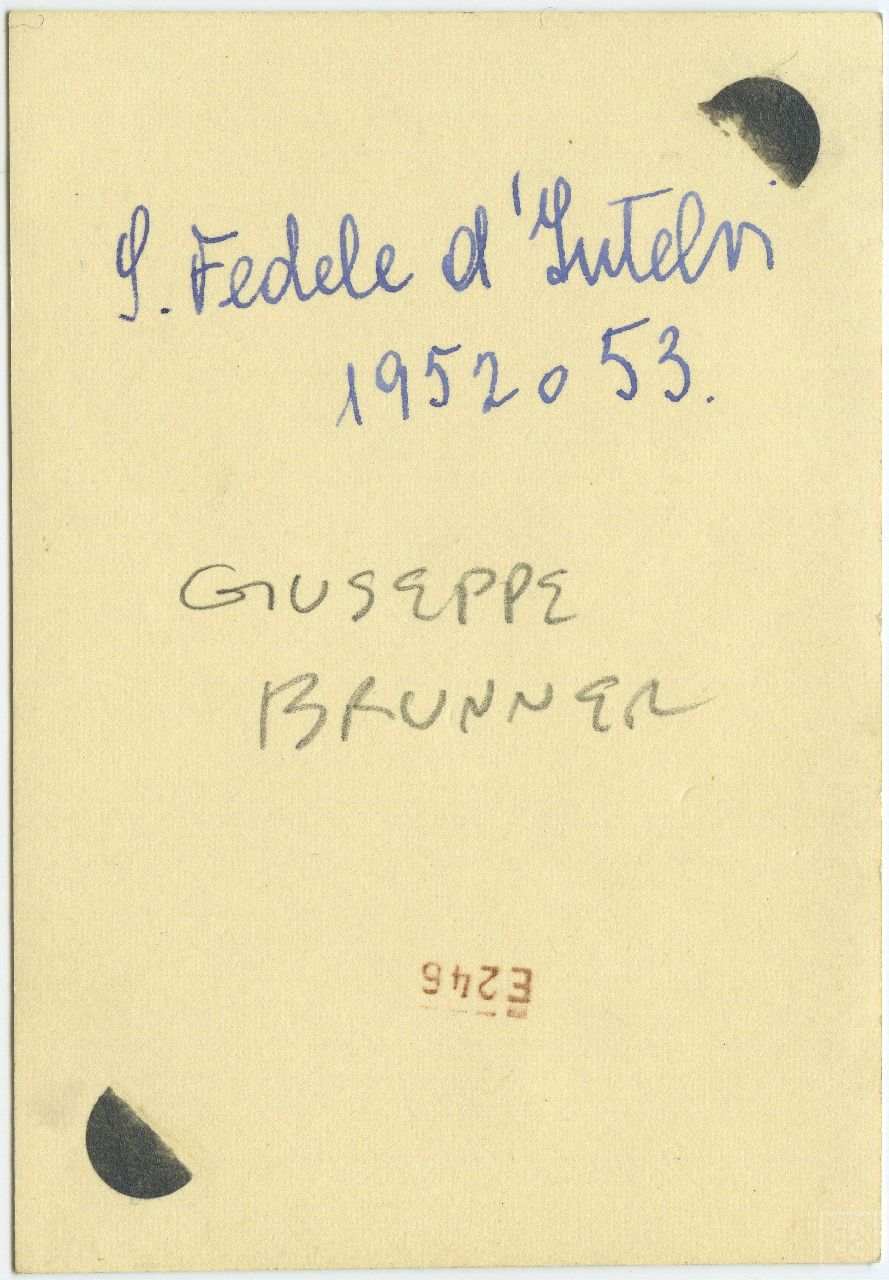 S. Fedele d'Intelvi
1952 o 53.
GIUSEPPE
BRUNNER
E246